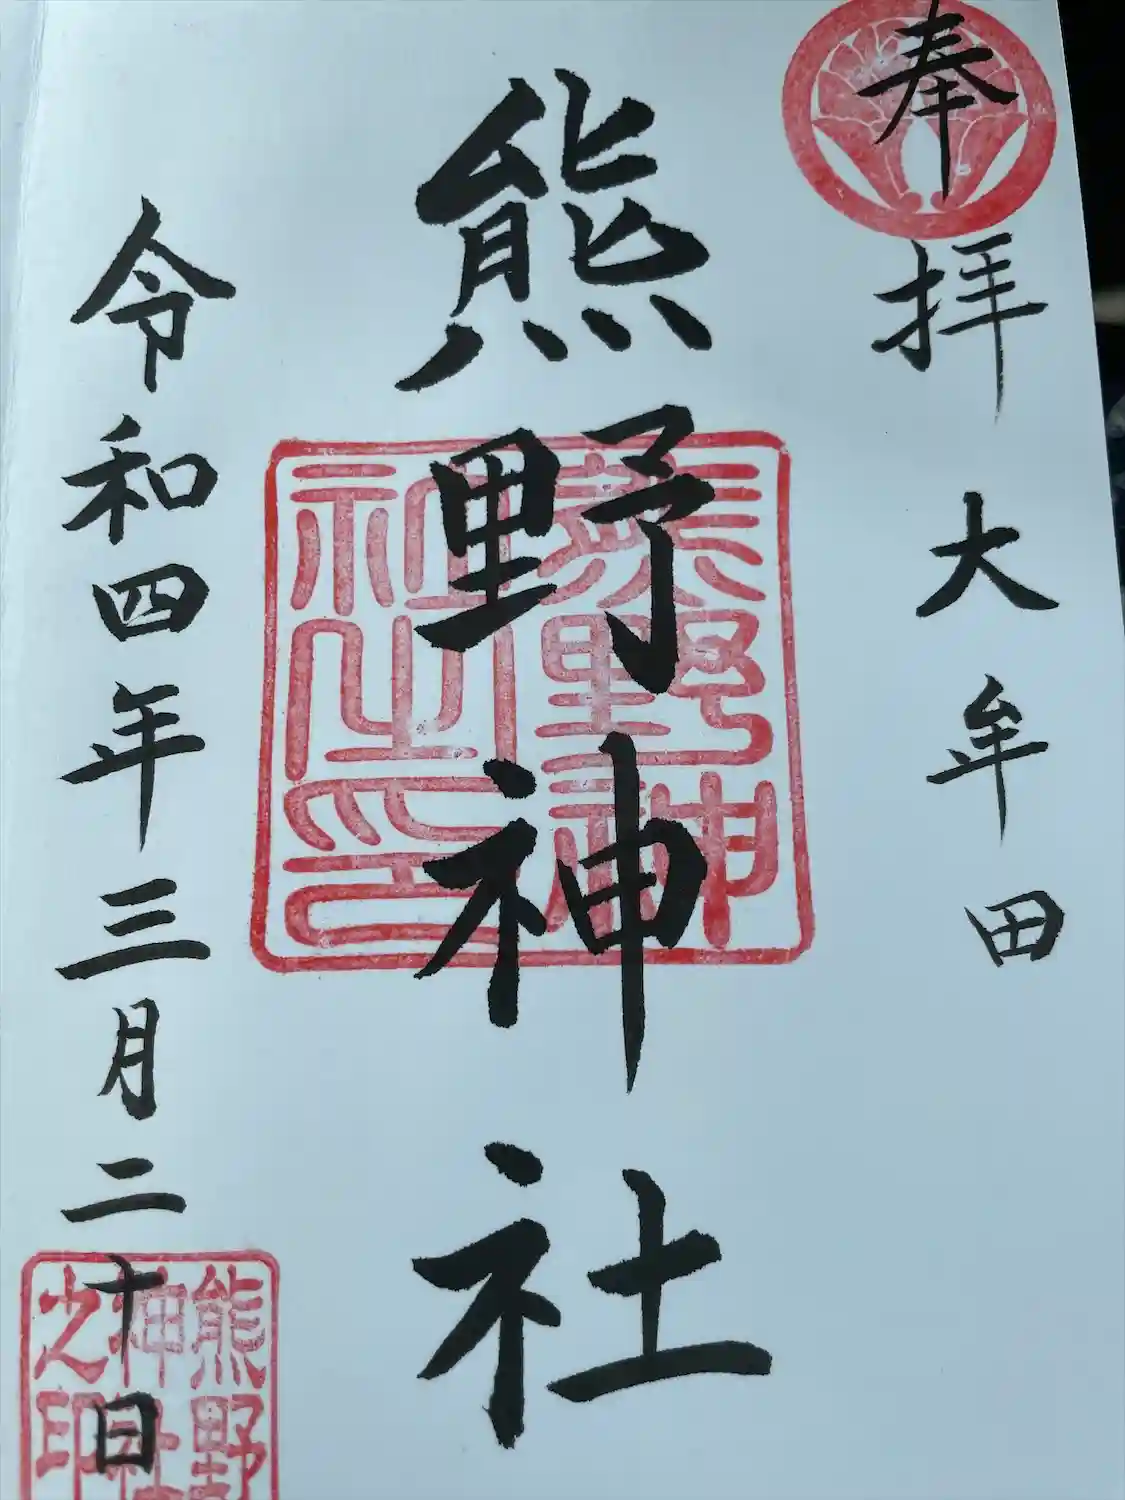 奉拝 大牟田
熊野神社
令和四年三月二十日
熊野神
社之印
熊野
神社
之印